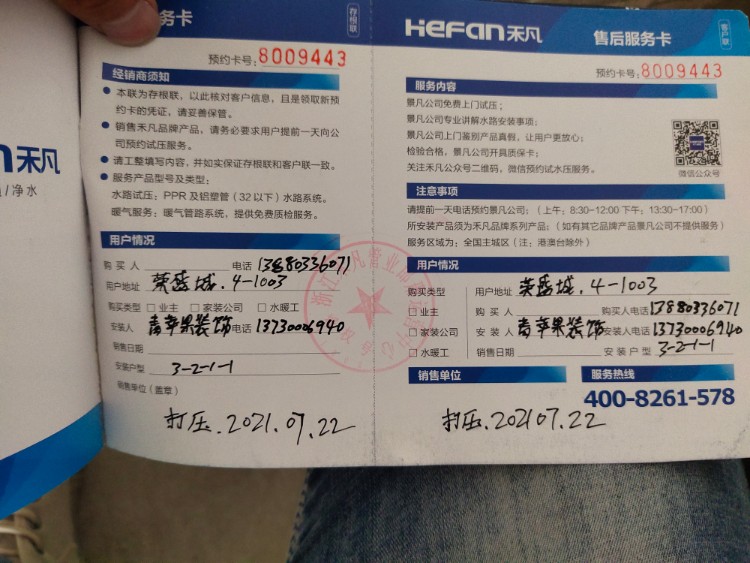 务卡
存根联
预约卡号：8009443
经销商须知
本联为存根联，以此核对客户信息，且是领取新预
约卡的凭证，请妥善保管。
销售禾凡品牌产品，请务必要求用户提前一天向公
司预约试压服务。
请工整填写内容，并如实保证存根联和客户联一致。
服务产品型号及类型：
水路试压：PPR 及铝塑管（32 以下）水路系统。
暖气服务：暖气管路系统，提供免费质检服务。
用户情况
购买人 电话 13880336071
用户地址 荣盛城.4-1003
购买类型 □ 业主 □ 家装公司 □ 水暖工
安装人 青苹果装饰 电话 13730006940
销售日期
安装户型 3-2-1-1
销售单位（盖章）
打压.2021.07.22
an禾凡
/净水
HeFan禾凡 售后服务卡
客户联
预约卡号：8009443
服务内容
景凡公司免费上门试压；
景凡公司专业讲解水路安装事项；
景凡公司上门鉴别产品真假，让用户更放心；
检验合格，景凡公司开具质保卡；
关注禾凡公众号二维码，微信预约试水压服务。
微信公众号
注意事项
请提前一天电话预约景凡公司；（上午：8:30-12:00 下午：13:30-17:00）
所安装产品须为禾凡品牌系列产品；（如有其它品牌产品景凡公司不提供服务）
服务区域为：全国主城区（注：港澳台除外）
用户情况
购买类型 用户地址 荣盛城.4-1003
□ 业主 购买人 购买人电话 13880336071
□ 家装公司 安装人 青苹果装饰 安装人电话 13730006940
□ 水暖工 销售日期 安装户型 3-2-1-1
销售单位 服务热线
400-8261-578
打压.2021 07.22